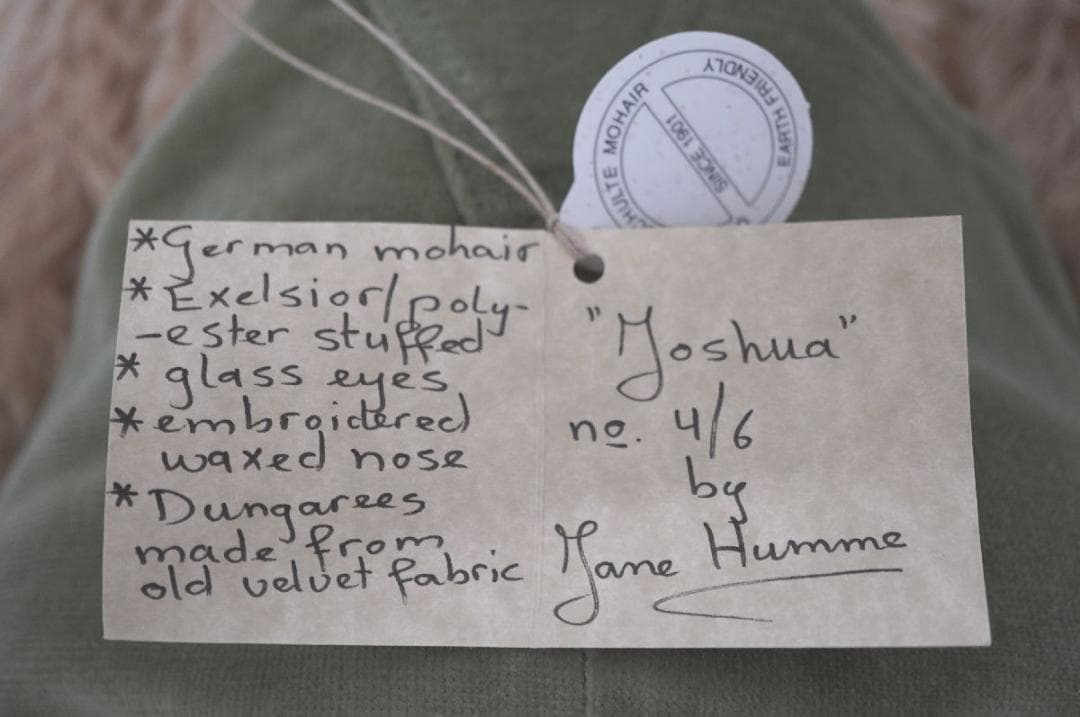 *German mohair
*Exelsior/poly-
-ester stuffed
* glass eyes
*embroidered
waxed nose
*Dungarees
made from
old velvet fabric
"Joshua"
no. 4/6
by
Jane Humme
HULTE MOHAIR
EARTH FRIENDLY
SINCE 1901